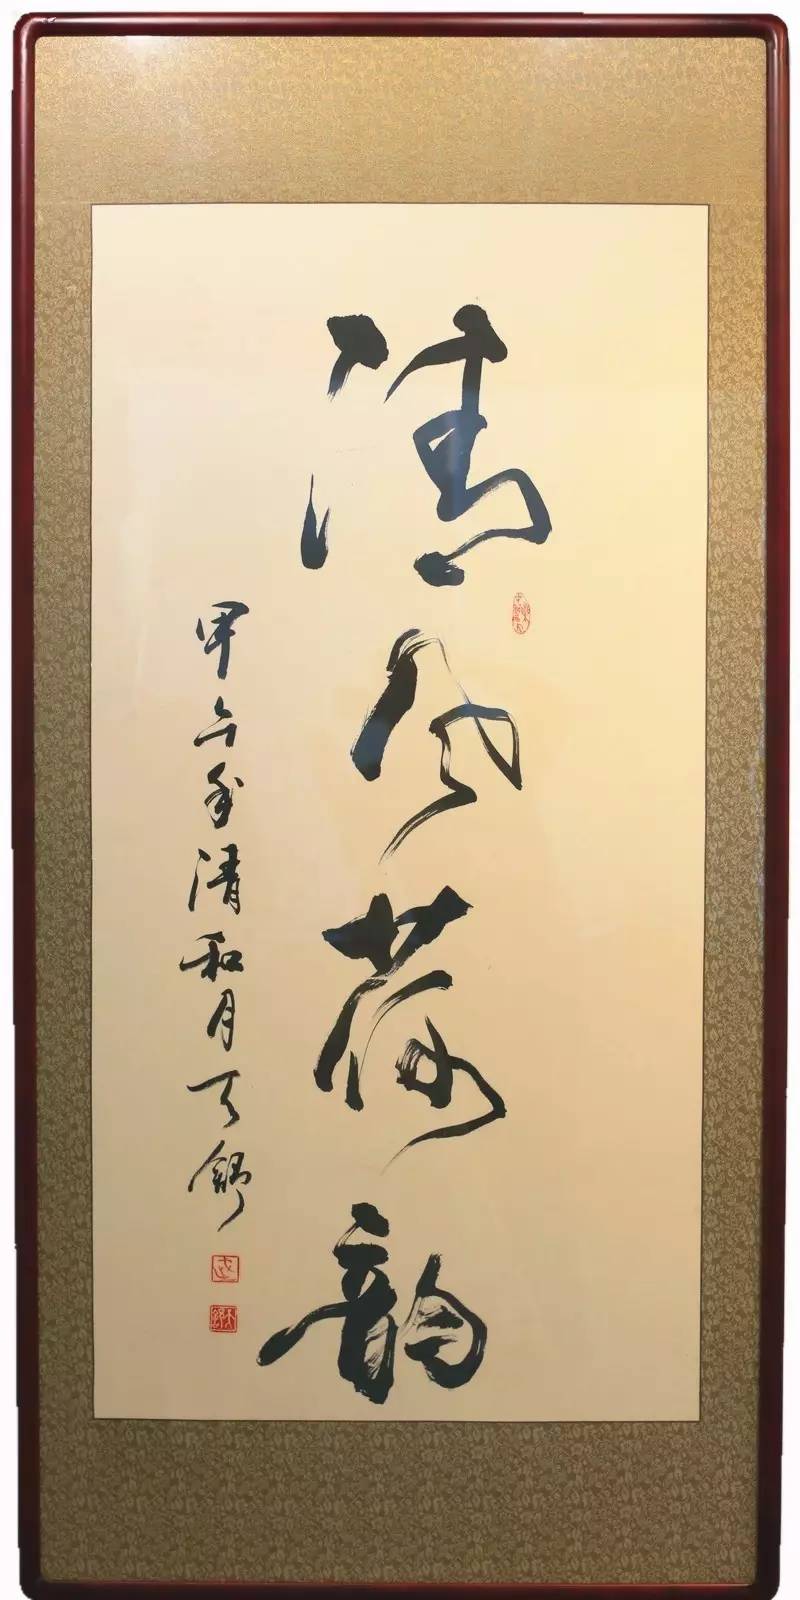 清风荷韵
甲午年清和月天舒